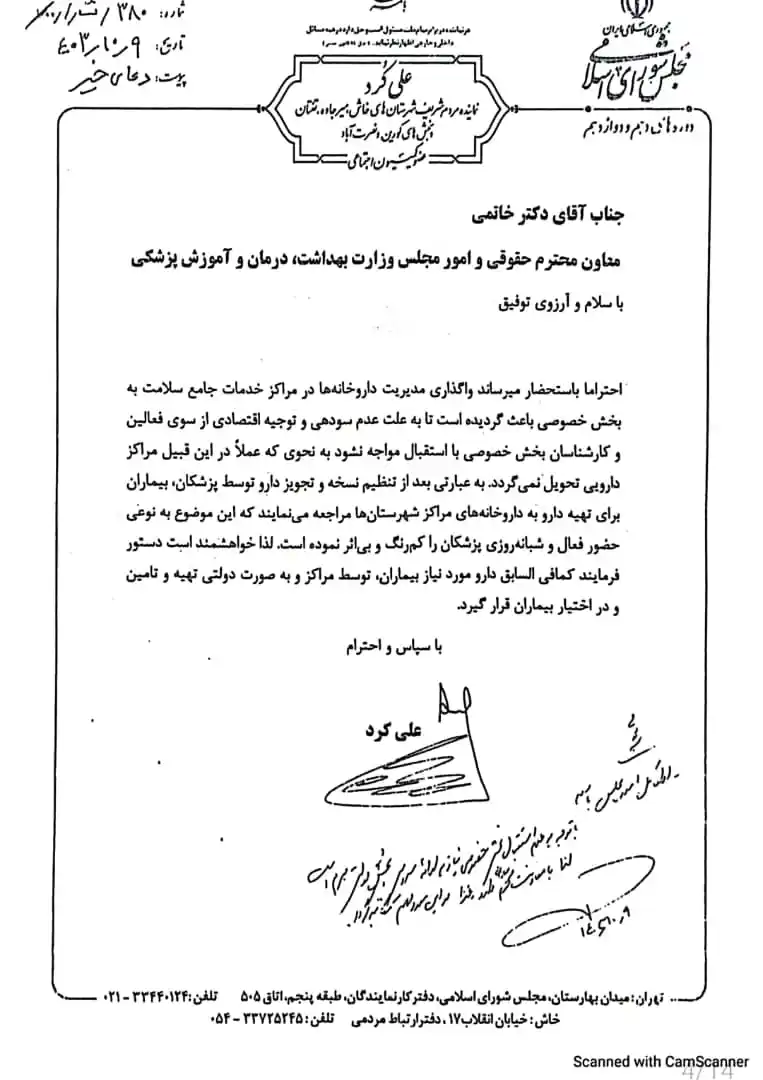 جمهوری اسلامی ایران
مجلس شورای اسلامی
دوره های دهم و دوازدهم
هر نماینده در برابر تمام ملت مسئول است و حق دارد در همه مسائل
داخلی و خارجی اظهار نظر نماید.
علی کرد
نماینده مردم شریف شهرستان های خاش، میرجاوه، تفتان
و بخش های کورین و نصرت آباد
عضو کمیسیون اجتماعی
شماره: ۳۸۰/
تاریخ: ۱۴۰۳/۱۰/۹
پیوست: دعای خیر
جناب آقای دکتر خاتمی
معاون محترم حقوقی و امور مجلس وزارت بهداشت، درمان و آموزش پزشکی
با سلام و آرزوی توفیق
احتراما باستحضار میرساند واگذاری مدیریت داروخانه‌ها در مراکز خدمات جامع سلامت به
بخش خصوصی باعث گردیده است تا به علت عدم سودهی و توجیه اقتصادی از سوی فعالین
و کارشناسان بخش خصوصی با استقبال مواجه نشود به نحوی که عملاً در این قبیل مراکز
دارویی تحویل نمی‌گردد. به عبارتی بعد از تنظیم نسخه و تجویز دارو توسط پزشکان، بیماران
برای تهیه دارو به داروخانه‌های مراکز شهرستان‌ها مراجعه می‌نمایند که این موضوع به نوعی
حضور فعال و شبانه‌روزی پزشکان را کم‌رنگ و بی‌اثر نموده است. لذا خواهشمند است دستور
فرمایند کمافی السابق دارو مورد نیاز بیماران، توسط مراکز و به صورت دولتی تهیه و تامین
و در اختیار بیماران قرار گیرد.
با سپاس و احترام
علی کرد
با توجه به عدم استقبال بخش خصوصی نیاز به ارائه سرویس بخش دولتی مبرم است
لذا با معاونت
تهران: میدان بهارستان، مجلس شورای اسلامی، دفتر کار نمایندگان، طبقه پنجم، اتاق ۵۰۵ تلفن: ۳۳۴۴۰۱۲۴ - ۰۲۱
خاش: خیابان انقلاب ۱۷، دفتر ارتباط مردمی تلفن: ۳۳۷۲۵۲۴۵ - ۰۵۴
Scanned with CamScanner
4/14